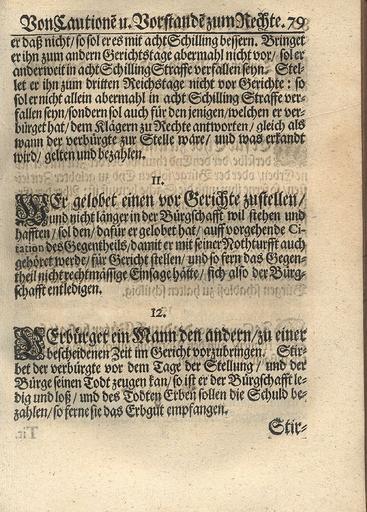 Von Cautionẽ u. Vorstandẽ zum Rechte. 79
er daß nicht/ so sol er es mit acht Schilling bessern. Bringet
er ihn zum andern Gerichtstage abermahl nicht vor/ sol er
anderweit in acht Schilling Straffe verfallen seyn. Stel-
let er ihn zum dritten Reichstage nicht vor Gerichte: so
sol er nicht allein abermahl in acht Schilling Straffe ver-
fallen seyn/ sondern sol auch für den jenigen/ welchen er ver-
bürget hat/ dem Klägern zu Rechte antworten/ gleich als
wann der verbürgte zur Stelle wäre/ und was erkandt
wird/ gelten und bezahlen.
11.
WEr gelobet einen vor Gerichte zustellen/
und nicht länger in der Bürgschafft wil stehen und
hafften/ sol den/ dafür er gelobet hat/ auff vorgehende Ci-
tation des Gegentheils/ damit er mit seiner Nothturfft auch
gehöret werde/ für Gericht stellen/ und so fern das Gegen-
theil nicht rechtmässige Einsage hätte/ sich also der Bürg-
schafft entledigen.
12.
VErbürget ein Mann den andern/ zu einer
bescheidenen Zeit im Gericht vorzubringen. Stir-
bet der verbürgte vor dem Tage der Stellung/ und der
Bürge seinen Todt zeugen kan/ so ist er der Bürgschafft le-
dig und loß/ und des Todten Erben sollen die Schuld be-
zahlen/ so ferne sie das Erbgut empfangen.
Stir-